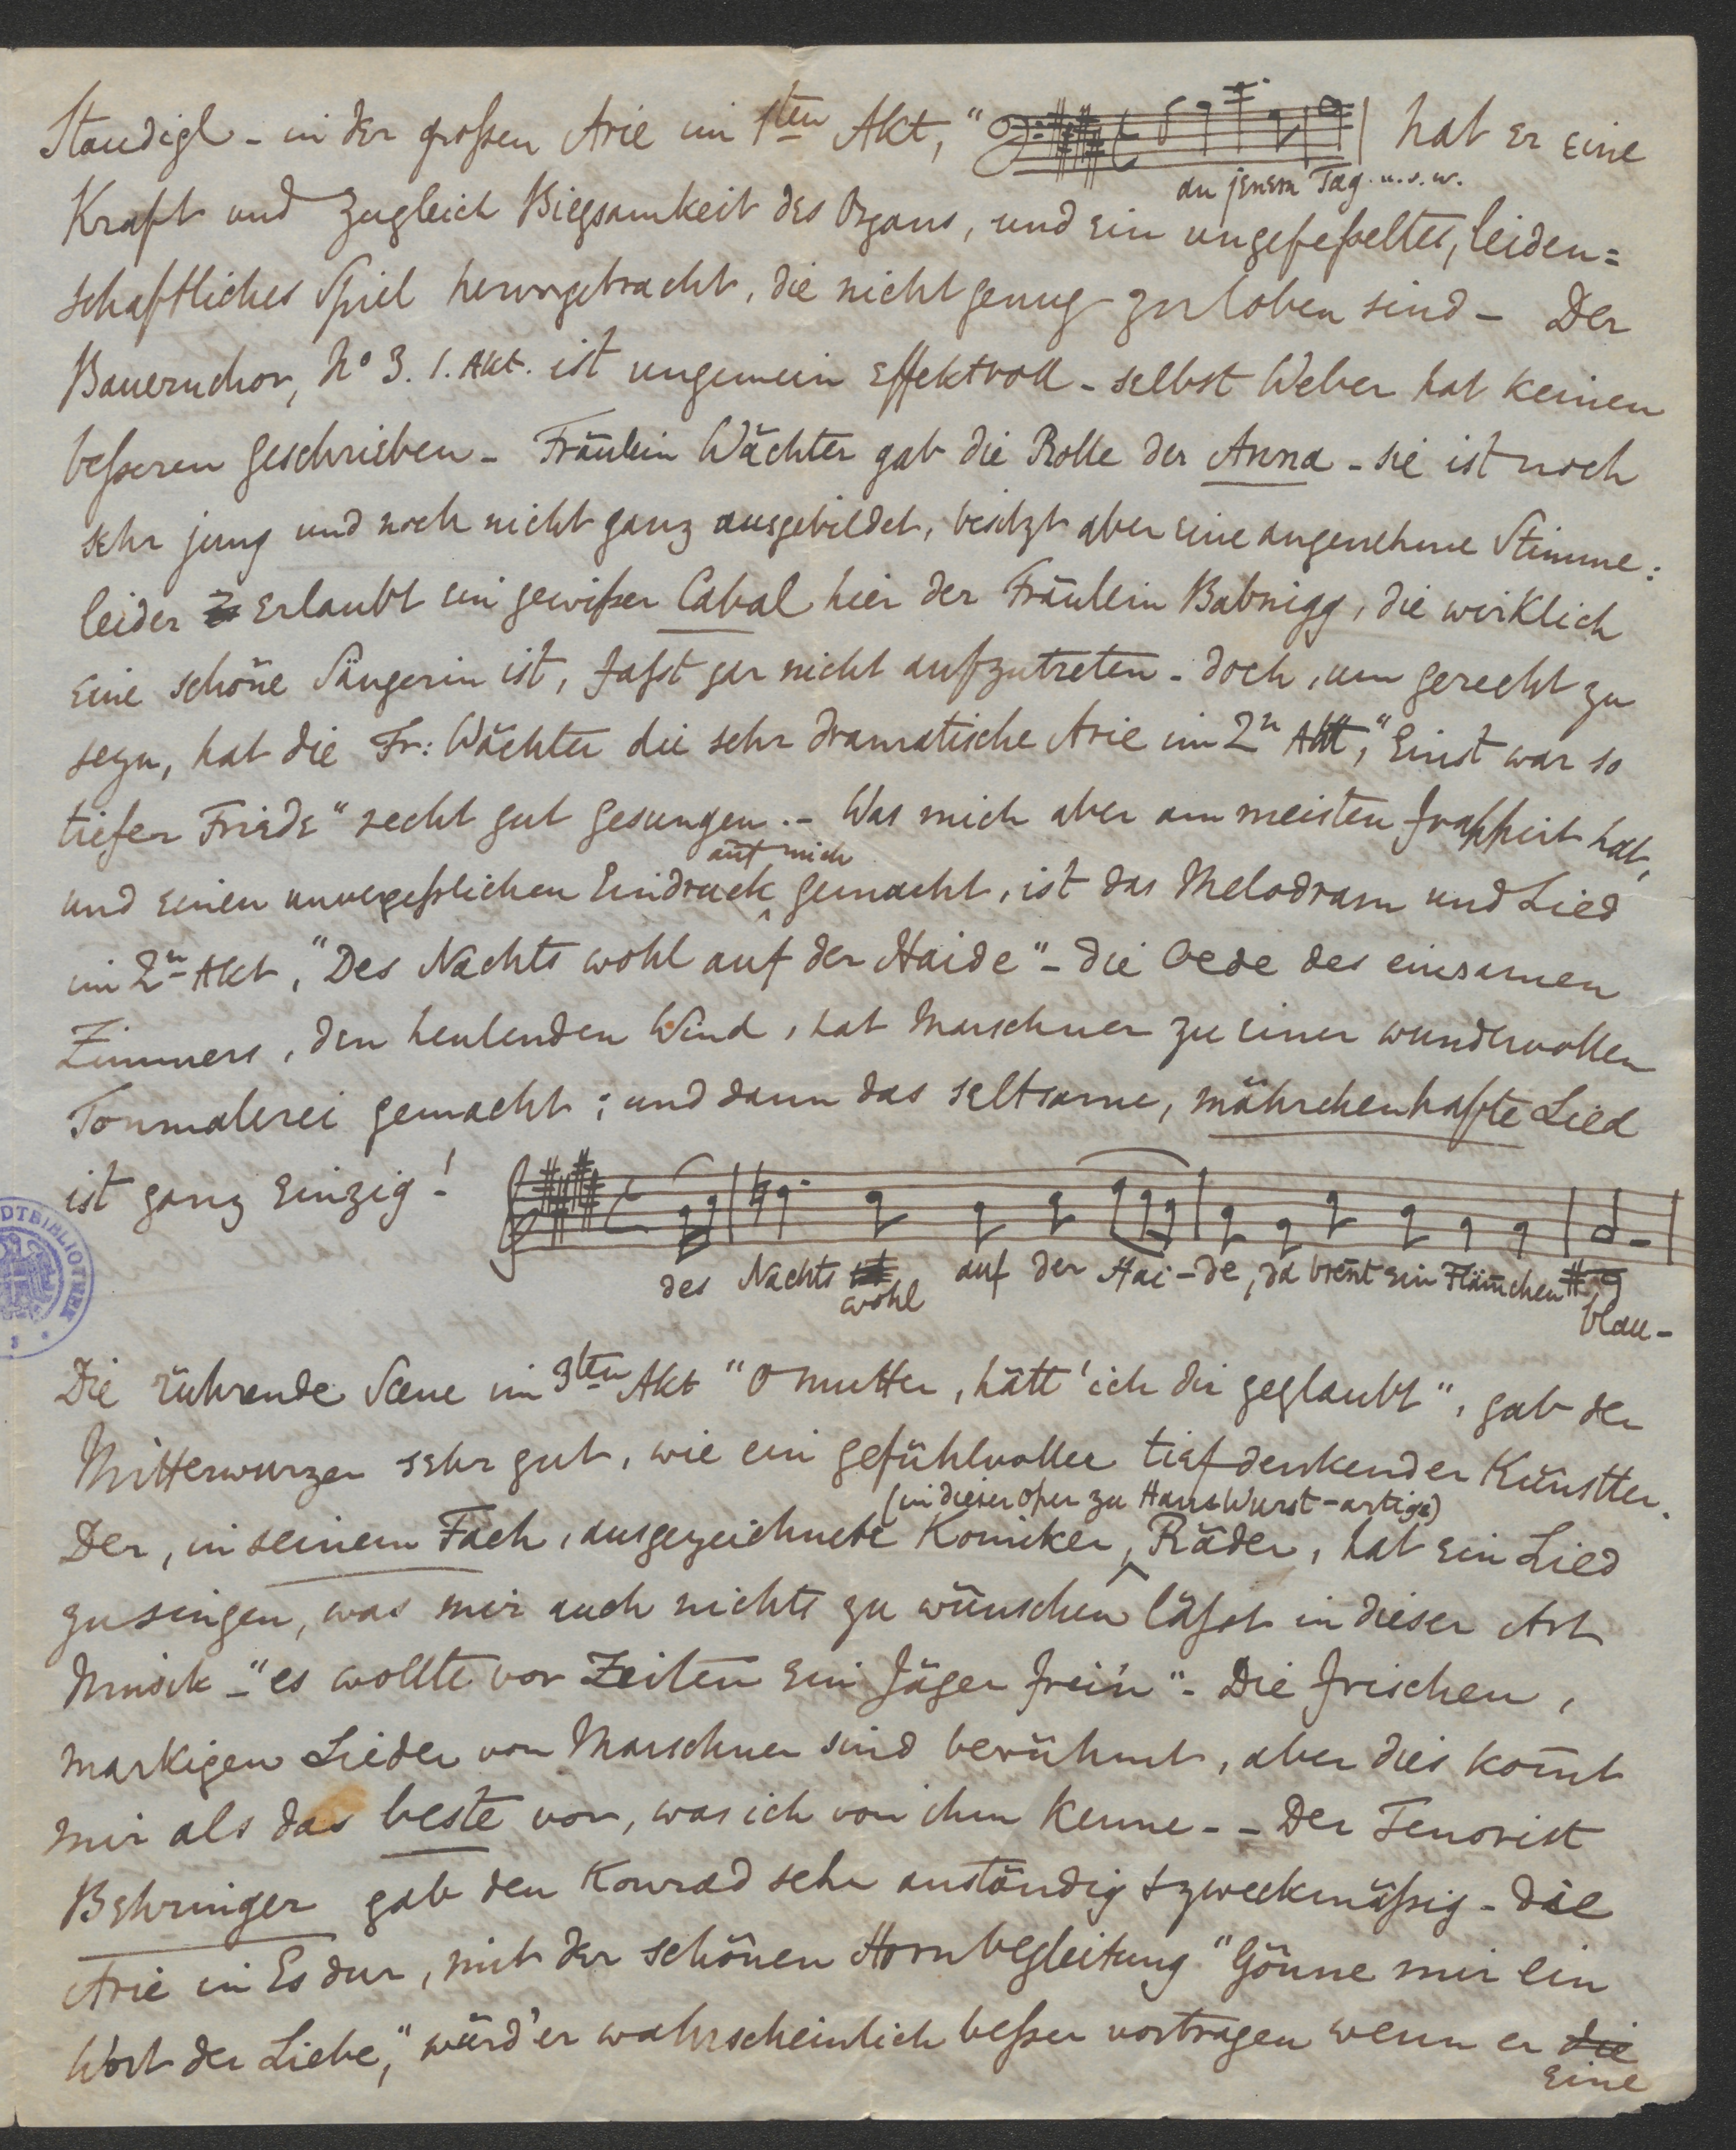 Staudigl - in der großen Arie im 1ten Akt, " hat er eine
an jenem Tag. u.s.w.
Kraft und zugleich Biegsamkeit des Organs, und ein ungefeßeltes, leiden=
schaftliches Spiel hervorgebracht, die nicht genug zu loben sind - Der
Bauernchor, No 3. 1. Akt. ist ungemein effektvoll - selbst Weber hat keinen
beßeren geschrieben - Fräulein Wächter gab die Rolle der Anna - sie ist noch
sehr jung und noch nicht ganz ausgebildet, besitzt aber eine angenehme Stimme:
leider erlaubt ein gewißer Cabal hier der Fräulein Babnigg, die wirklich
eine schöne Sängerin ist, fast gar nicht aufzutreten - doch, um gerecht zu
seyn, hat die Fr: Wächter die sehr dramatische Arie im 2n Akt, "Einst war so
tiefer Friede" recht gut gesungen. - Was mich aber am meisten frappirt hat,
auf mich
und einen unvergeßlichen Eindruck gemacht, ist das Melodram und Lied
im 2n Akt, "Des Nachts wohl auf der Haide" - die Oede des einsamen
Zimmers, den heulenden Wind, hat Marschner zu einer wundervollen
Tonmalerei gemacht; und dann das seltsame, mährchenhafte Lied
ist ganz einzig!
des Nachts wohl auf der Hai-de, da breñt ein Flämchen blau-
Die rührende Scene im 3ten Akt "O Mutter, hätt' ich dir geglaubt", gab der
Mitterwurzer sehr gut, wie ein gefühlvoller tiefdenkender Künstler.
(in dieser Oper zu HansWurst-artige)
Der, in seinem Fach, ausgezeichnete Komiker, Räder, hat ein Lied
zu singen, was mir auch nichts zu wünschen läßt in dieser Art
Musik - "es wollte vor Zeiten ein Jäger frei'n" - Die frischen,
markigen Lieder von Marschner sind berühmt, aber dies kom̄t
mir als das beste vor, was ich von ihm kenne - - Der Tenorist
Behringer gab den Konrad sehr anständig & zweckmäßig - die
Arie in Es dur, mit der schönen Hornbegleitung "Gönne mir ein
Wort der Liebe," würd' er wahrscheinlich beßer vortragen wenn er die
eine